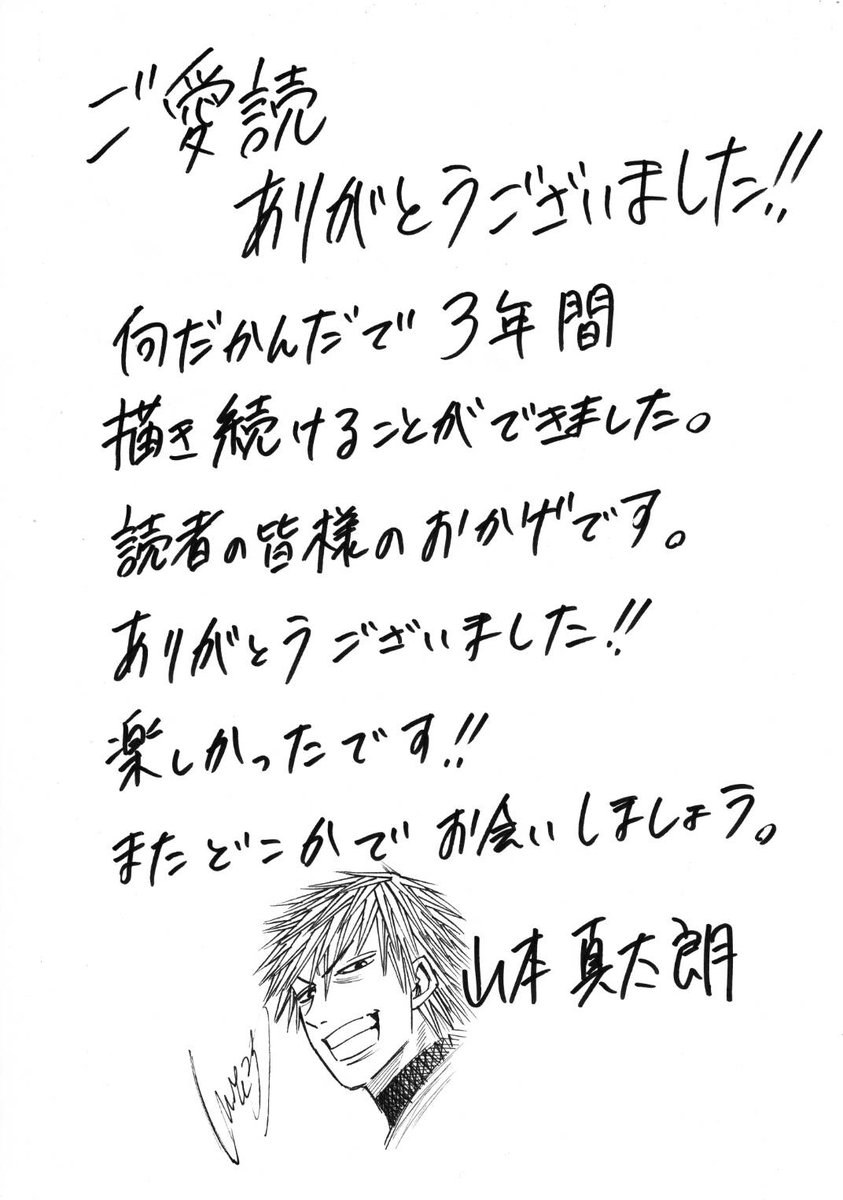 ご愛読
ありがとうございました!!
何だかんだで3年間
描き続けることができました。
読者の皆様のおかげです。
ありがとうございました!!
楽しかったです!!
またどこかでお会いしましょう。
山本真太朗